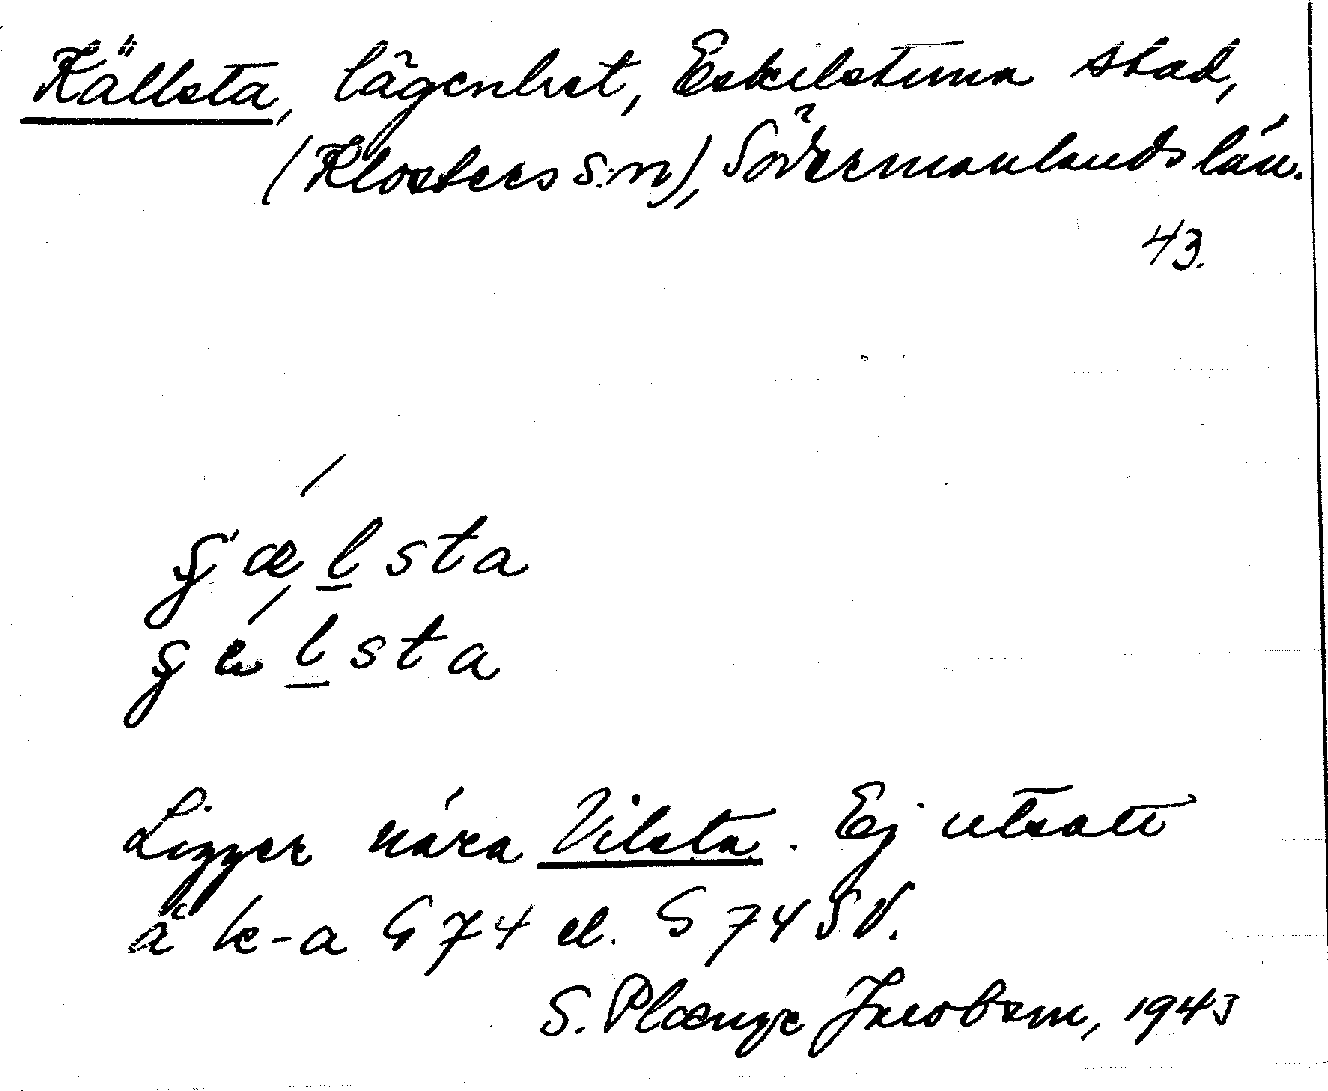 Källsta, lägenhet, Eskilstuna stad,
(Klosters s:n), Södermanlands län.
43.
ꞔælsta
ꞔélsta
Ligger nära Vilsta. Ej utsatt
å k-a G 74 el. G 74 SV.
S. Plænge Jacobson, 1943